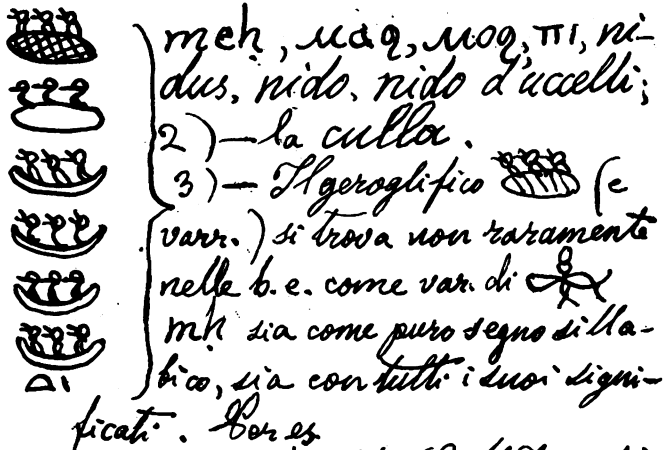 meh, ⲙⲁϩ, ⲙⲟϩ, πι, ni-
dus, nido, nido d'uccelli;
2) — la culla.
3) — Il geroglifico (e
varr.) si trova non raramente
nelle b. e. come var. di
mh sia come puro segno silla-
bico, sia con tutti i suoi signi-
ficati.